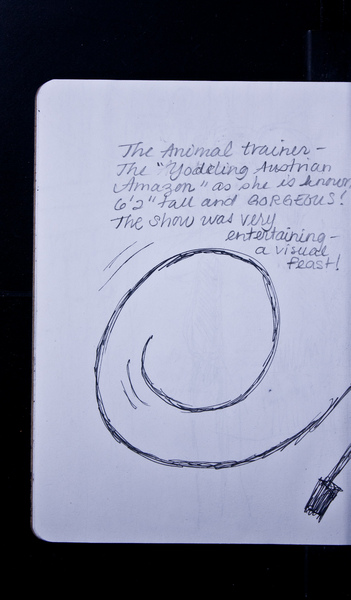 The Animal trainer -
The "Yodeling Austrian
Amazon" as she is known
6'2" tall and GORGEOUS!
The show was very
entertaining -
a visual
feast!